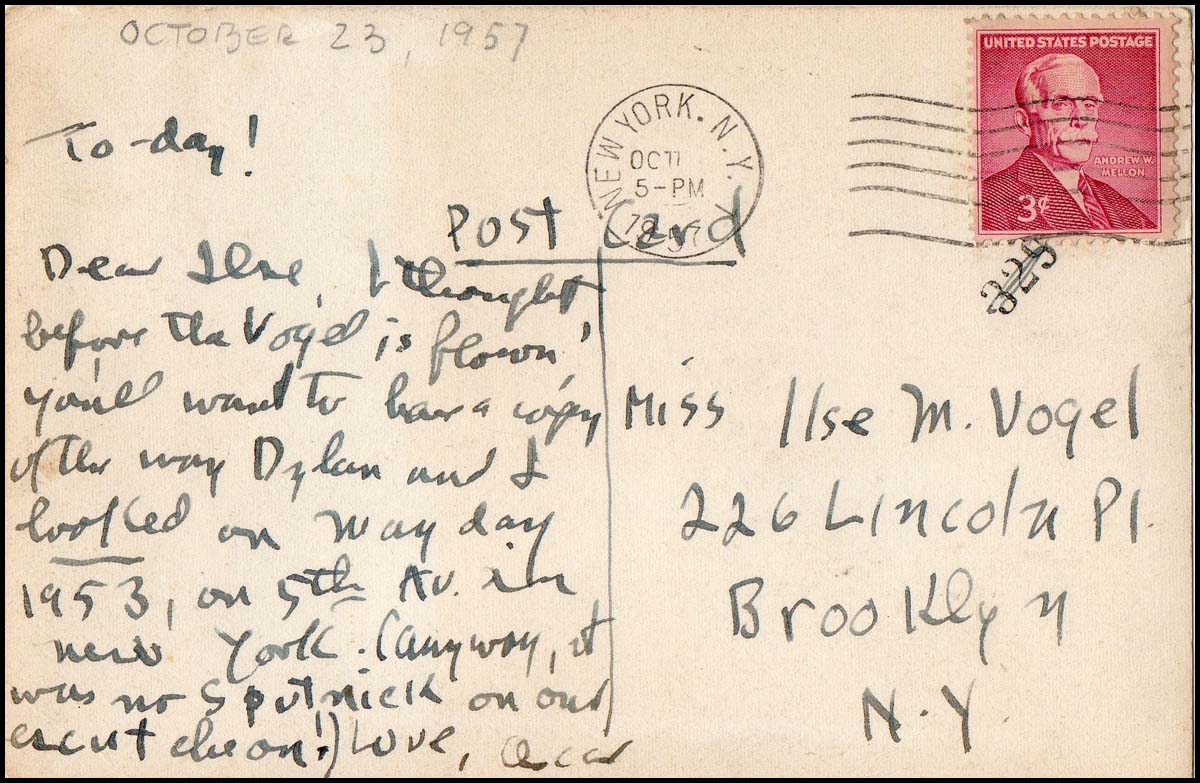 OCTOBER 23, 1957
To-day!
Post Card
Dear Ilse, I thought
before the Vogel is flown,
you'll want to have a copy
of the way Dylan and I
looked on May day
1953, on 5th Av. in
new York. (anyway, it
was no Sputnick on our
escutcheon!) Love, Oscar
NEW YORK, N.Y.
OCT
5-PM
UNITED STATES POSTAGE
ANDREW W.
MELLON
3¢
325
Miss Ilse M. Vogel
226 Lincoln Pl.
Brooklyn
N.Y.